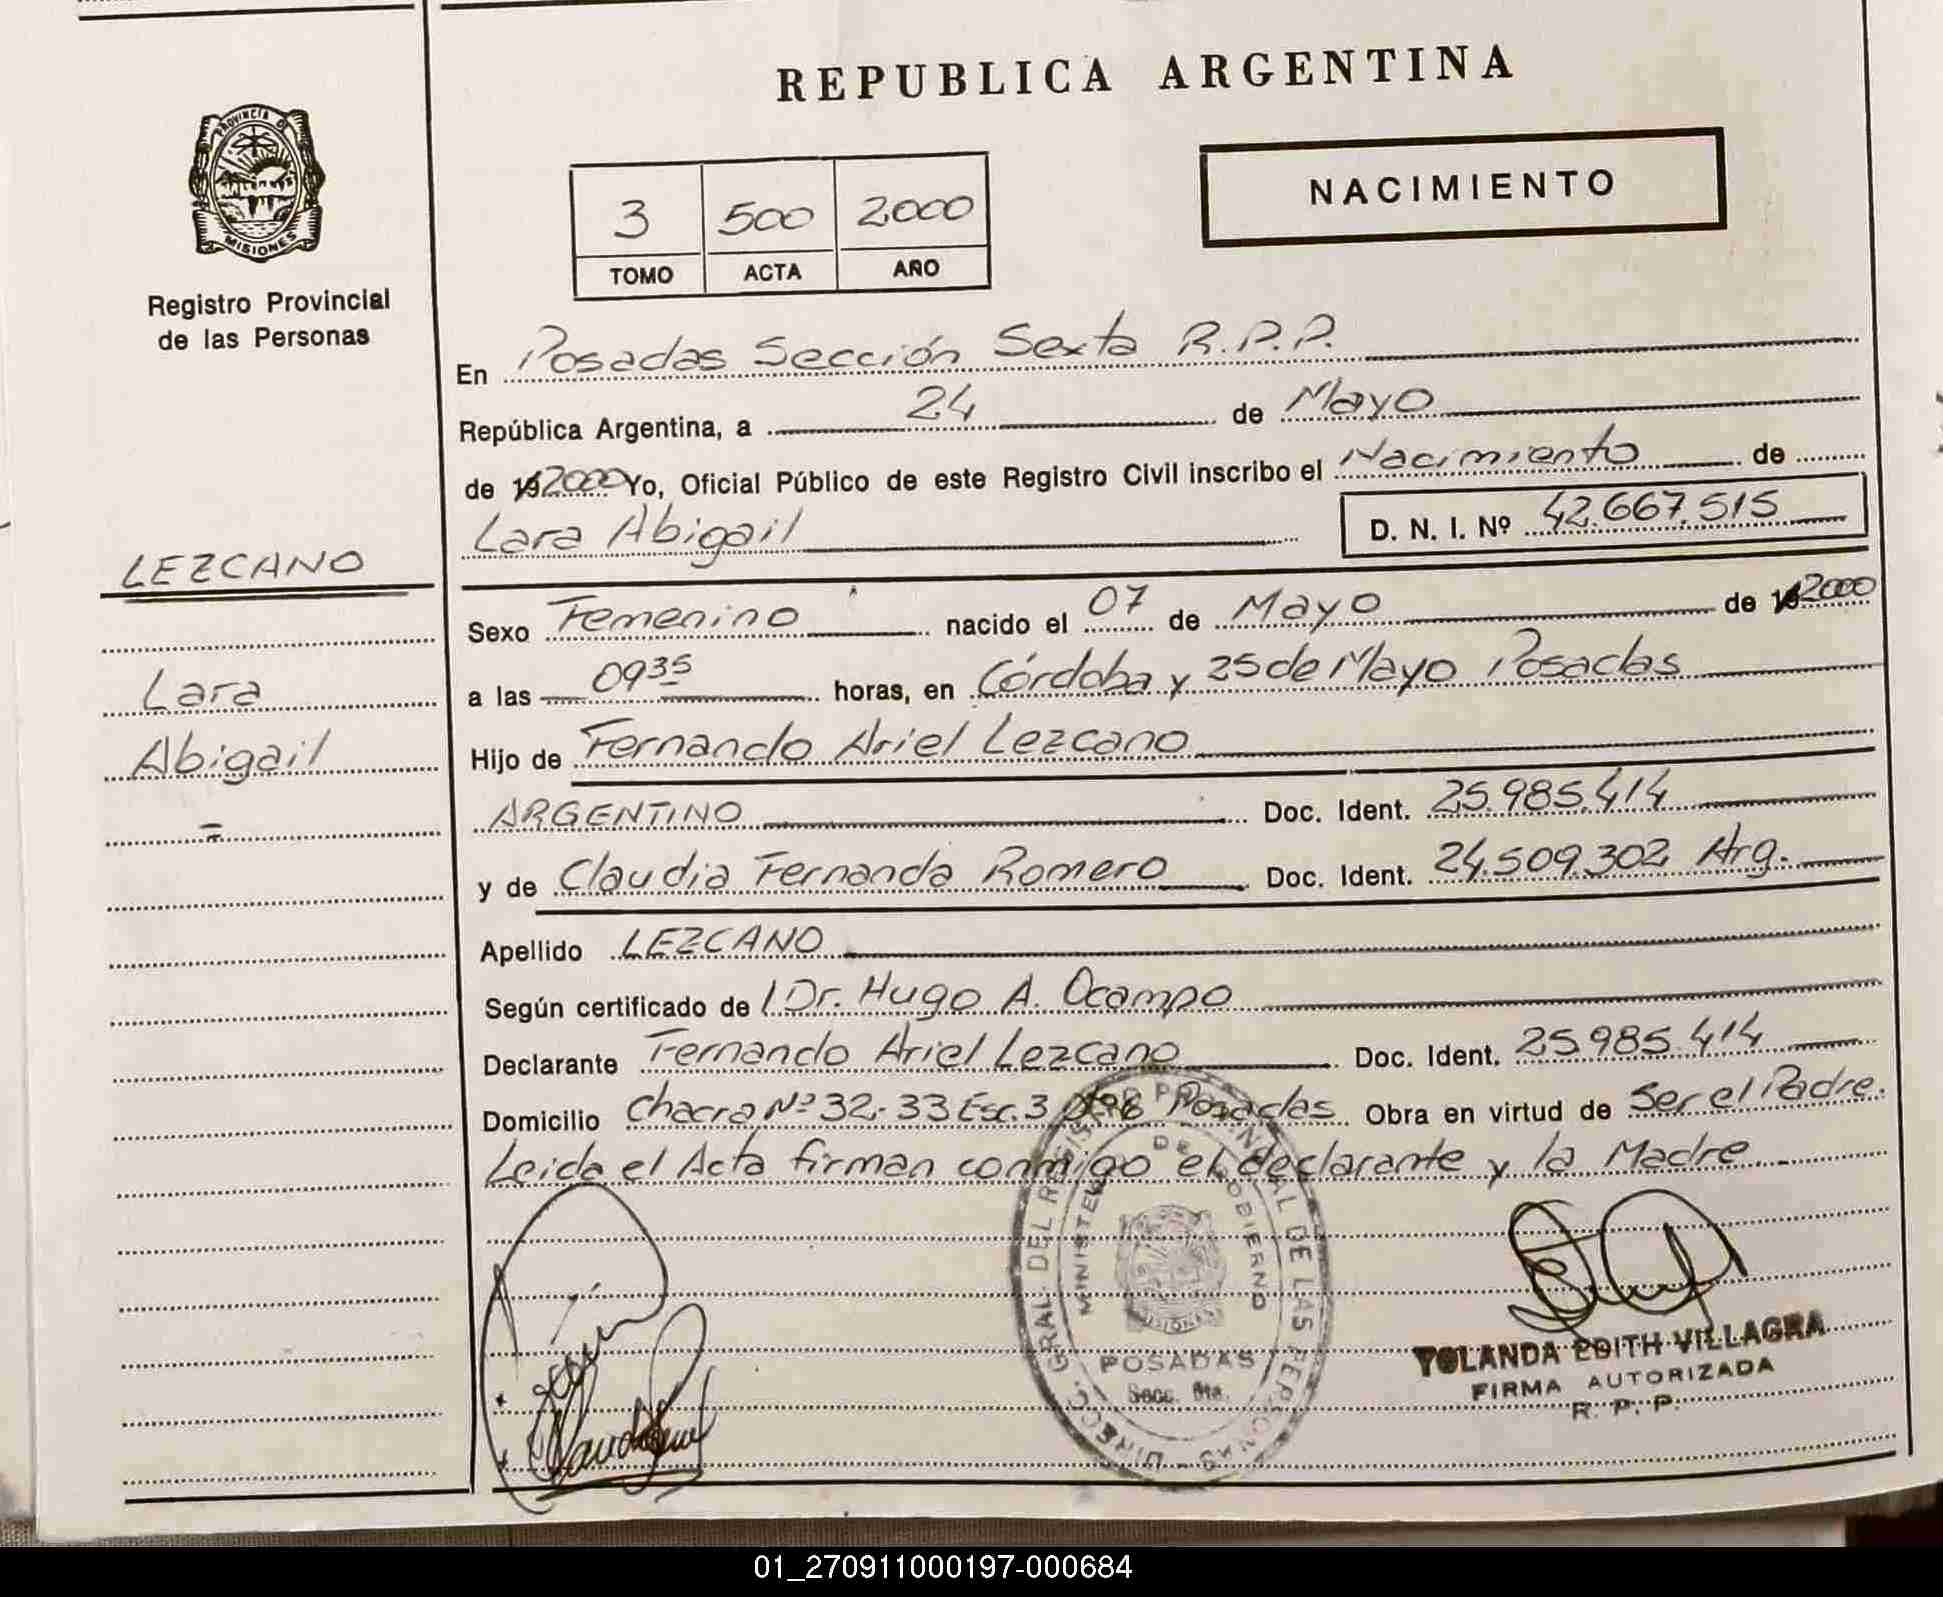 REPUBLICA ARGENTINA
PROVINCIA DE
MISIONES
Registro Provincial
de las Personas
3 500 2000
TOMO ACTA AÑO
NACIMIENTO
En Posadas Sección Sexta R.P.P.
República Argentina, a 24 de Mayo
de 192000 Yo, Oficial Público de este Registro Civil inscribo el Nacimiento de
Lara Abigail D. N. I. Nº 42.667.515
LEZCANO
Lara
Abigail
Sexo Femenino nacido el 07 de Mayo de 192000
a las 0935 horas, en Córdoba y 25 de Mayo Posadas
Hijo de Fernando Ariel Lezcano
ARGENTINO Doc. Ident. 25.985.414
y de Claudia Fernanda Romero Doc. Ident. 24.509.302 Arg.
Apellido LEZCANO
Según certificado de Dr. Hugo A. Ocampo
Declarante Fernando Ariel Lezcano Doc. Ident. 25.985.414
Domicilio Chacra Nº 32-33 Esc. 3 Posadas Obra en virtud de Ser el Padre.
Leida el Acta firman conmigo el declarante y la Madre
DIRECC. GRAL. DEL REGISTRO PROVINCIAL DE LAS PERSONAS
MINISTERIO DE GOBIERNO
MISIONES
POSADAS
Secc. 6ta.
YOLANDA EDITH VILLAGRA
FIRMA AUTORIZADA
R. P. P.
01_270911000197-000684